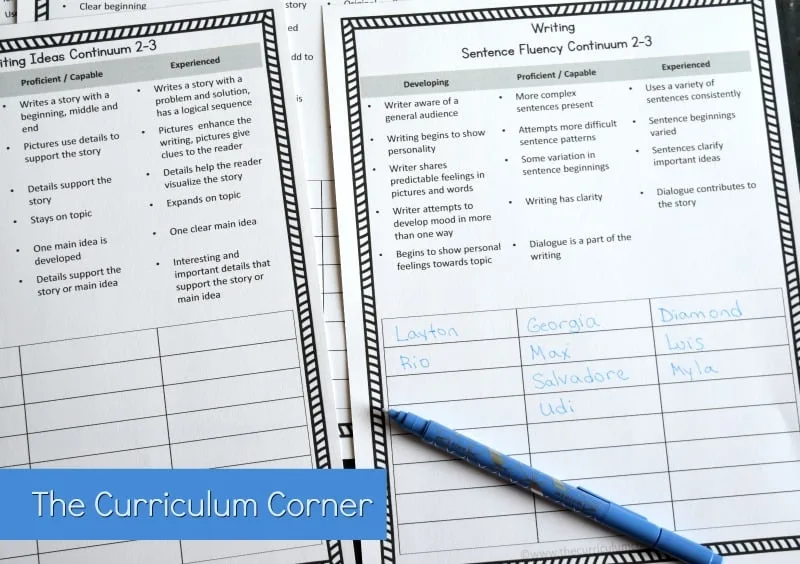 Clear beginning
story
ed
dd to
is
iting Ideas Continuum 2-3
Proficient / Capable
Experienced
Writes a story with a
beginning, middle and
end
Pictures use details to
support the story
Details support the
story
Stays on topic
One main idea is
developed
Details support the
story or main idea
Writes a story with a
problem and solution,
has a logical sequence
Pictures enhance the
writing, pictures give
clues to the reader
Details help the reader
visualize the story
Expands on topic
One clear main idea
Interesting and
important details that
support the story or
main idea
Writing
Sentence Fluency Continuum 2-3
Developing
Proficient / Capable
Experienced
Writer aware of a
general audience
Writing begins to show
personality
Writer shares
predictable feelings in
pictures and words
Writer attempts to
develop mood in more
than one way
Begins to show personal
feelings towards topic
More complex
sentences present
Attempts more difficult
sentence patterns
Some variation in
sentence beginnings
Writing has clarity
Dialogue is a part of the
writing
Uses a variety of
sentences consistently
Sentence beginnings
varied
Sentences clarify
important ideas
Dialogue contributes to
the story
Layton Georgia Diamond
Rio Max Luis
Salvadore Myla
Udi
The Curriculum Corner
©www.thecurriculum